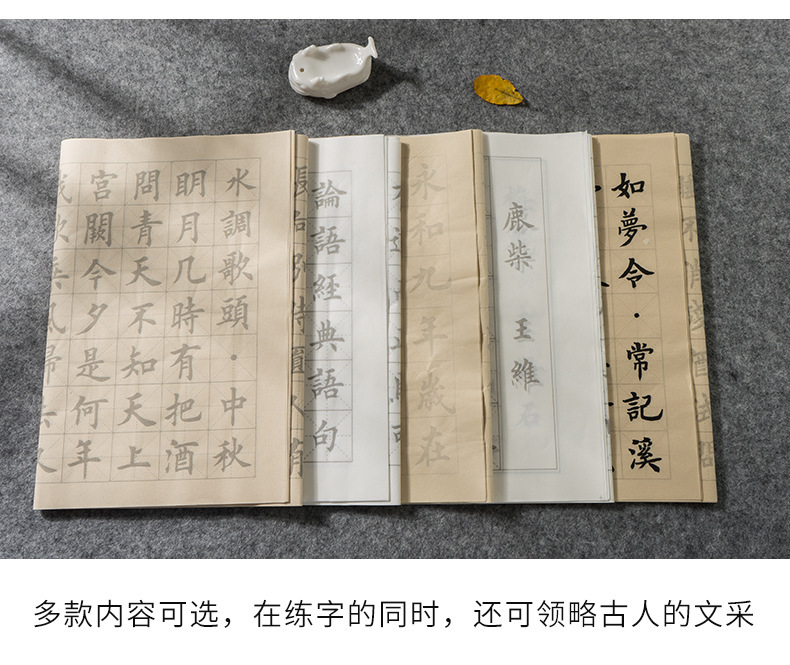 水調歌頭·中秋
眀月几時有把酒
問青天不知天上
宮闕今夕是何年
論語經典語句
永和九年歲在
鹿柴 王維
如夢令·常記溪
多款内容可选，在练字的同时，还可领略古人的文采